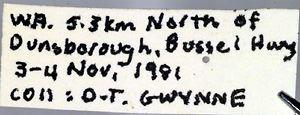 WA. 5.3km North of
Dunsborough, Bussel Hwy
3-4 Nov, 1981
Coll: D.T. GWYNNE